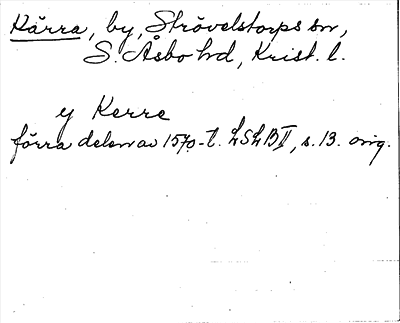 Kärra, by, Strövelstorps sn,
S. Åsbo hd, Krist. l.
y Kerre
förra delen av 1570-t. LSLB II, s. 13. orig.